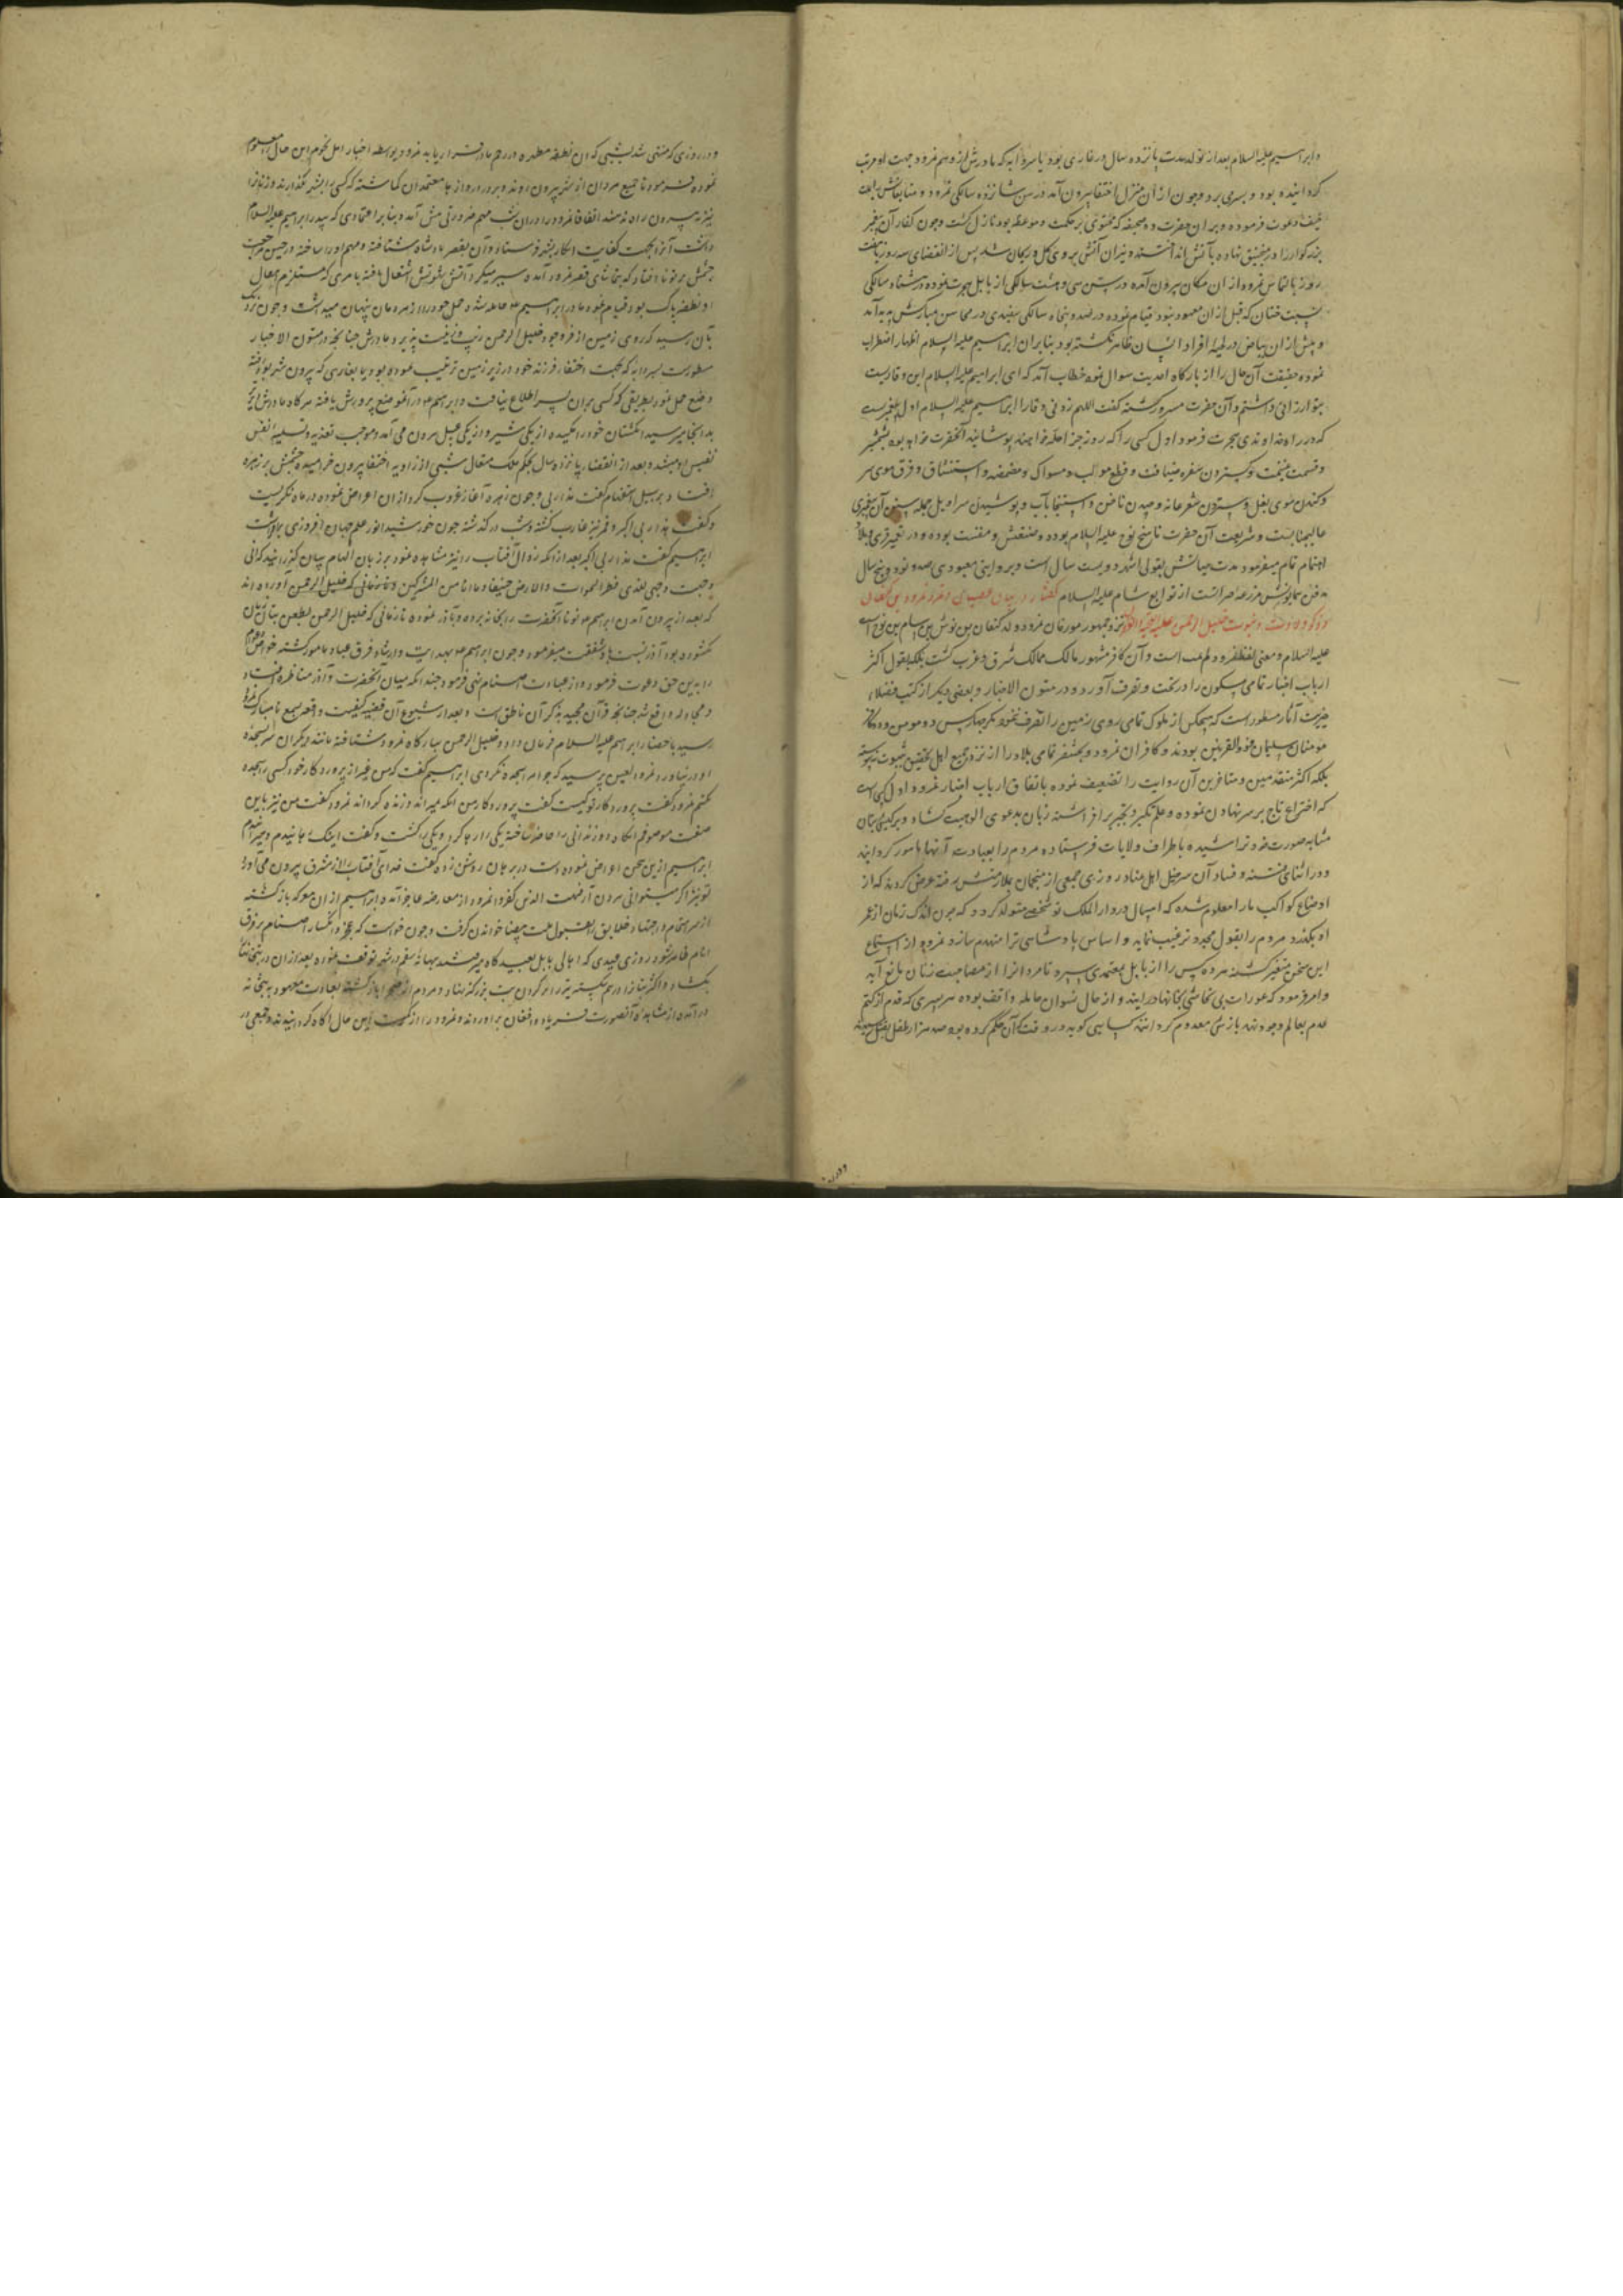 وابراسیم علیه السلام بعد از تولد مدت پانزده سال در غاری بود یا سردابه که مادرش از وهم نمرود بجهت او مرتب
کردانیده بود و بسری برد و چون از ان منزل اختفا بیرون آمد در سن شانزده سالکی نمرود و متابعانش را بملت
حنیف دعوت فرموده و بر ان حضرت ده صحیفه که محتوی بر حکمت و موعظه بود نازل کشت و چون کفار آن پیغمبر
بزرکوار را در منجنیق نهاده بآتش انداختند و نیران آتش بروی کل و ریحان شد پس از انقضای سه روز یا هفت
روز بالتماس نمرود از ان مکان بیرون آمده در سن سی و هشت سالکی از بابل هجرت نموده در هشتاد سالکی
بسنت ختان که قبل از ان معهود نبود قیام نموده در صد و پنجاه سالکی سفیدی در محاسن مبارکش پدید آمد
و پیش از ان بیاض در لحیه افراد انسان ظاهر نکشته بود بنابران ابراسیم علیه السلام اظهار اضطراب
نموده حقیقت آن حال را از بارکاه احدیت سوال نمود خطاب آمد که ای ابراهیم علیه السلام این وقاریست
بتو ارزانی داشتم و آن حضرت مسرور کشته کفت اللهم زدنی وقارا ابراسیم علیه السلام اول پیغمبریست
که در راه خداوندی هجرت فرمود اول کسی را که روز جزا حله خواهند پوشانید آنحضرت خواهد بود
و قسمت غنیمت و کستردن سفره ضیافت و قطع موی لب و مسواک و مضمضه و استنشاق و فرق موی سر
و کندن موی بغل و ستردن شعر عانه و چیدن ناخن و استنجا بآب و پوشیدن سراویل جمله سنن آن پیغمبر
عالیجنابست و شریعت آن حضرت ناسخ نوح علیه السلام بوده و در تعمیر قری و بلاد
اهتمام تمام میفرمود مدت حیاتش بقول اشهر دویست سال است و بروایتی صد و نود و پنج سال
مدفن همایونش مزرعه حبرانست از توابع شام علیه السلام کفتار در بیان نمرود بن کنعان
و ذکر ولادت و نبوت خلیل الرحمن علیه نزد جمهور مورخان نمرود ولد کنعان بن کوش بن سام بن نوح است
علیه السلام و معنی لفظ نمرود لم یمت است و آن کافر مشهور مالک ممالک شرق و غرب کشت بلکه بقول اکثر
ارباب اخبار تمامی ربع مسکون را در تحت تصرف آورد و در متون الاخبار و بعضی دیکر از کتب فضلاء
آثار مسطور است که هیچکس از ملوک تمامی روی زمین را تصرف ننمود مکر چهار کس دو مومن و دو کافر
مومنان سلیمان و ذوالقرنین بودند و کافران نمرود و بخت نصر تمامی بلاد را از نزد جمیع اهل تحقیق ثبوت نپیوسته
بلکه اکثر متقدمین و متاخرین آن روایت را تضعیف نموده باتفاق ارباب اخبار نمرود اول کسی است
که اختراع تاج بر سر نهادن نموده و علم تکبر و تجبر بر افراشته زبان بدعوی الوهیت کشاد و بتان
مشابه صورت خود تراشیده باطراف ولایات فرستاده مردم را بعبادت آنها مامور کردانید
و در اثنای فتنه و فساد آن سرخیل اهل عناد روزی جمعی از منجمان بملازمتش رفته عرض کردند که از
اوضاع کواکب ما را معلوم شده که امسال در دار الملک تو شخصی متولد کردد که چون اندک زمان از عمر
او بکذرد مردم را بقبول مجدد ترغیب نماید و اساس پادشاهی ترا منهدم سازد نمرود از استماع
این سخن متغیر کشته هر ده کس را از بابل بمعتمدی سپرد تا مردانرا از مصاحبت زنان مانع آید
و امر فرمود که عورات بی تحاشی بخانها در آیند و از حال نسوان حامله واقف بوده هر پسری که قدم از کتم
عدم بعالم وجود نهد باز معدوم کردانند
ودر روز
و در روزی که منتهی شد بشبی که ان نطفه مطهره در رحم مادر قرار یابد نمرود بواسطه اخبار اهل نجوم این حال معلوم
نموده فرمود تا جمیع مردان از شهر بیرون روند و بر دروازها معتمدان کماشته که کسی را بشهر نکذارند و زنانرا
نیز بیرون راه ندهند اتفاقا نمرود را دران شب مهم ضروری پیش آمد و بنابر اعتمادی که بپدر ابراهیم علیه السلام
داشت آنرا بجهت کفایت ان کار بشهر فرستاد و آن بقصر پادشاه شتافته و مهم او را ساخته در حین مراجعت
چشمش بر نونا افتاد که بتماشای قصر نمرود آمده سیر میکرد آتش شهوتش اشتعال یافته بامری که مستلزم انتقال
او نطفه پاک بود قیام نمود مادر ابراسیم حامله شد و حمل خود را از مردمان پنهان میداشت و چون نزدیک
بآن رسید که روی زمین از فر وجود خلیل الرحمن زیب و زینت پذیرد مادرش چنانچه در متون الاخبار
مسطورست بسردابه که بجهت اختفاء فرزند خود در زیر زمین ترتیب نموده بود یا بغاری که بیرون شهر بود رفته
وضع حمل نمود بطریقی که کسی بران سر اطلاع نیافت و ابراهیم در آن موضع پرورش یافته هرکاه مادرش
بدانجا میرسید انکشتان خود را میکیده از یکی شیر و از یکی عسل بیرون می آمد و موجب تغذیه و تسلیه نفس
نفیس او میشد و بعد از انقضاء پانزده سال بحکم ملک متعال شبی از زاویه اختفا بیرون خرامیده چشمش بر زهره
افتاد بر سبیل استفهام کفت هذا ربی و چون زهره آغاز غروب کرد از ان اعراض نموده در ماه نکریست
و کفت هذا ربی اکبر و قمر نیز غارب کشته و شب در کذشته چون خورشید انور علم جهان افروزی برافراشت
ابراسیم کفت هذا ربی اکبر بعد از انکه زوال آفتاب را نیز مشاهده نمود بر زبان الهام بیان کذرانید که انی
وجهت وجهی للذی فطر السموات والارض حنیفا وما انا من المشرکین و مورخانی که خلیل الرحمن آورده اند
که بعد از بیرون آمدن ابراسیم نونا آنحضرت را بخانه برده و بآذر نموده تا زمانی که خلیل الرحمن بطعن بتان زبان
نکشوده بود آذر نسبت باو شفقت میفرمود و چون ابراسیم بهدایت و ارشاد فرق عباد مامور کشته خواص و عوام
را بدین حق دعوت فرمود و از عبادت اصنام نهی فرمود چند آنکه میان آنحضرت و آذر مناظره افتاد
و مجادله واقع شد چنانچه قرآن مجید بذکر آن ناطق است و بعد از شیوع آن قضیه کیفیت واقعه بسمع نامبارک نمرود
رسید باحضار ابراسیم علیه السلام فرمان داد و خلیل الرحمن ببارکاه نمرود شتافته مانند دیکران سر بسجده
او در نیاورد نمرود لعین پرسید که چرا مرا سجده نکردی ابراسیم کفت که من غیر از پروردکار خود کسی را سجده
نکنم نمرود کفت پروردکار تو کیست کفت پروردکار من انکه میراند و زنده کرداند نمرود کفت من نیز باین
صفت موصوفم انکاه دو زندانی را حاضر ساخته یکی را رها کرد و یکی را کشت و کفت اینک احیا نمودم و میراندم
ابراسیم ازین سخن اعراض نموده دست در برهان روشن زده کفت خدای آفتاب را از مشرق بیرون می آورد
تو نیز اکر میتوانی بیرون آر فبهت الذی کفر و نمرود از معارضه عاجز آمده ابراسیم از ان معرکه بازکشته
از سر اهتمام و اجتهاد خلایق را بقبول ملت بیضا خواندن کرفت و چون خواست که عجز و انکسار اصنام بر فرق
انام ظاهر شود روزی عیدی که اهالی بابل بعیدکاه میرفتند ببهانه سقم در شهر توقف نموده بعد از ان در بتخانه
بکشاد و اکثر بتانرا درهم شکسته تبر را بر کردن بت بزرکتر نهاد و مردم از صحرا بازکشته بعادت معهود به بتخانه
درآمده از مشاهده آنصورت فریاد و افغان برآوردند و نمرود را از این حال آکاه کردانیدند